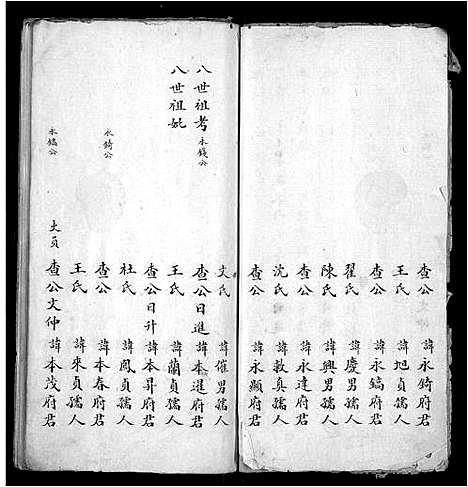 查公 諱永錡府君
王氏 諱旭貞孺人
查公 諱永鎬府君
翟氏 諱慶男孺人
陳氏 諱興男孺人
查公 諱永達府君
沈氏 諱敎真孺人
查公 諱永顯府君
文氏 諱催男孺人
八世祖考 永錢公 查公日進 諱本暹府君
八世祖妣 王氏 諱蘭貞孺人
查公日升 諱本昇府君
杜氏 諱鳳貞孺人
永錡公 查公 諱本春府君
王氏 諱來貞孺人
永鎬公 丈員 查公文仲 諱本茂府君